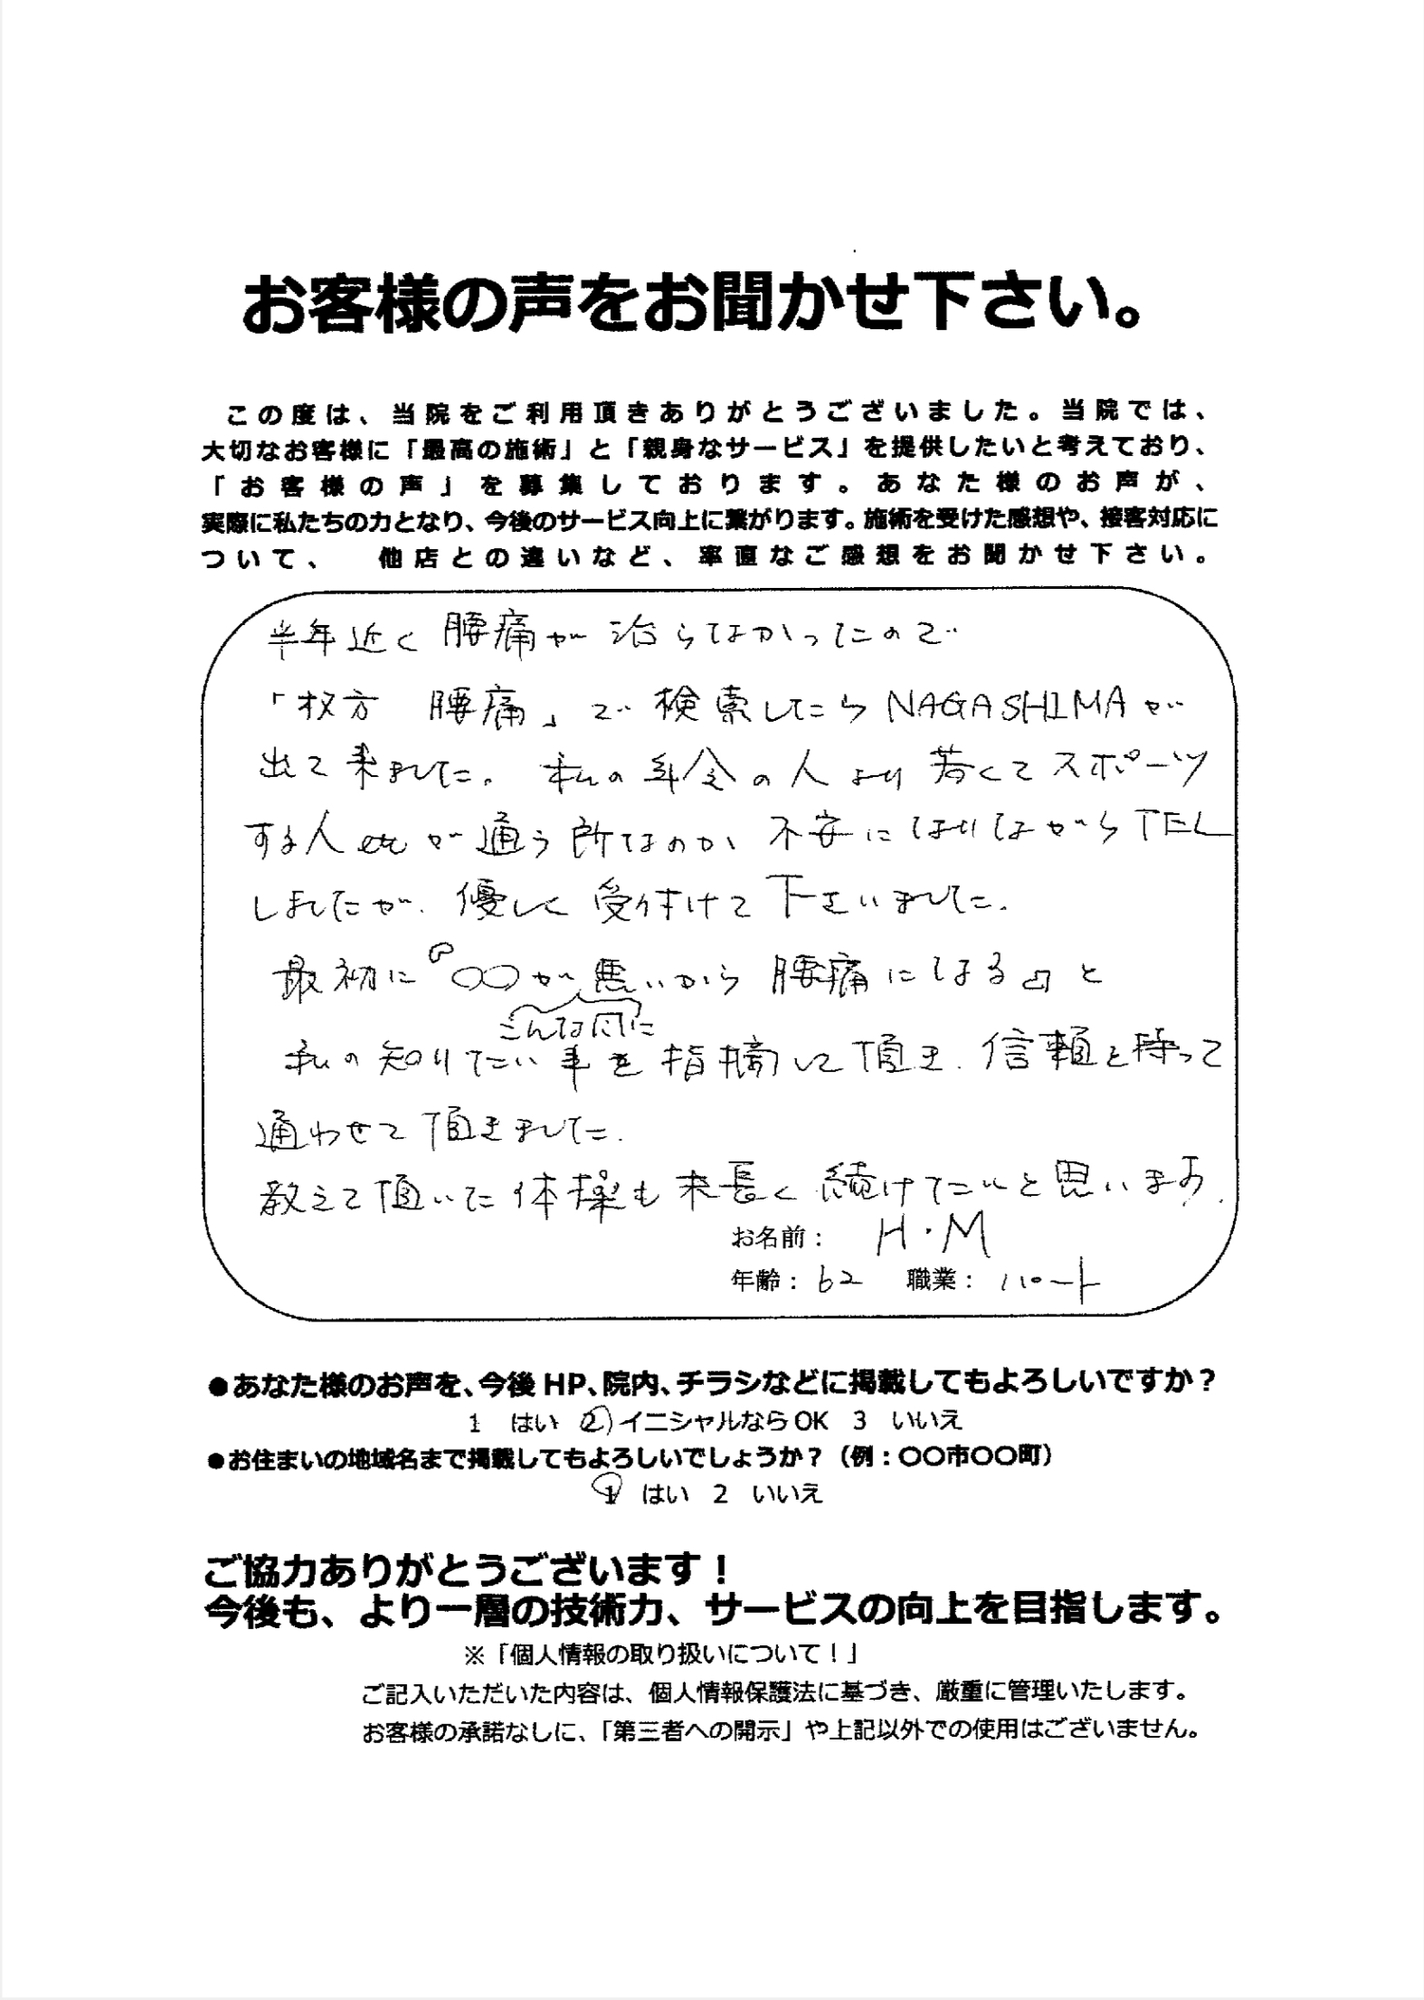 お客様の声をお聞かせ下さい。
この度は、当院をご利用頂きありがとうございました。当院では、
大切なお客様に「最高の施術」と「親身なサービス」を提供したいと考えており、
「お客様の声」を募集しております。あなた様のお声が、
実際に私たちの力となり、今後のサービス向上に繋がります。施術を受けた感想や、接客対応に
ついて、 他店との違いなど、率直なご感想をお聞かせ下さい。
半年近く腰痛が治らなかったので
「枚方 腰痛」で検索したらNAGASHIMAが
出て来ました。私の年令の人より若くてスポーツ
する人etcが通う所なのか不安になりながらTEL
しましたが、優しく受付けて下さいました。
最初に『〇〇が悪いから腰痛になる』と
こんな風に
私の知りたい事を指摘して頂き、信頼を持って
通わせて頂きました。
教えて頂いた体操も末長く続けてたいと思います。
お名前： H・M
年齢：62 職業：パート
●あなた様のお声を、今後HP、院内、チラシなどに掲載してもよろしいですか？
1 はい ②イニシャルならOK 3 いいえ
●お住まいの地域名まで掲載してもよろしいでしょうか？（例：〇〇市〇〇町）
① はい 2 いいえ
ご協力ありがとうございます！
今後も、より一層の技術力、サービスの向上を目指します。
※「個人情報の取り扱いについて！」
ご記入いただいた内容は、個人情報保護法に基づき、厳重に管理いたします。
お客様の承諾なしに、「第三者への開示」や上記以外での使用はございません。